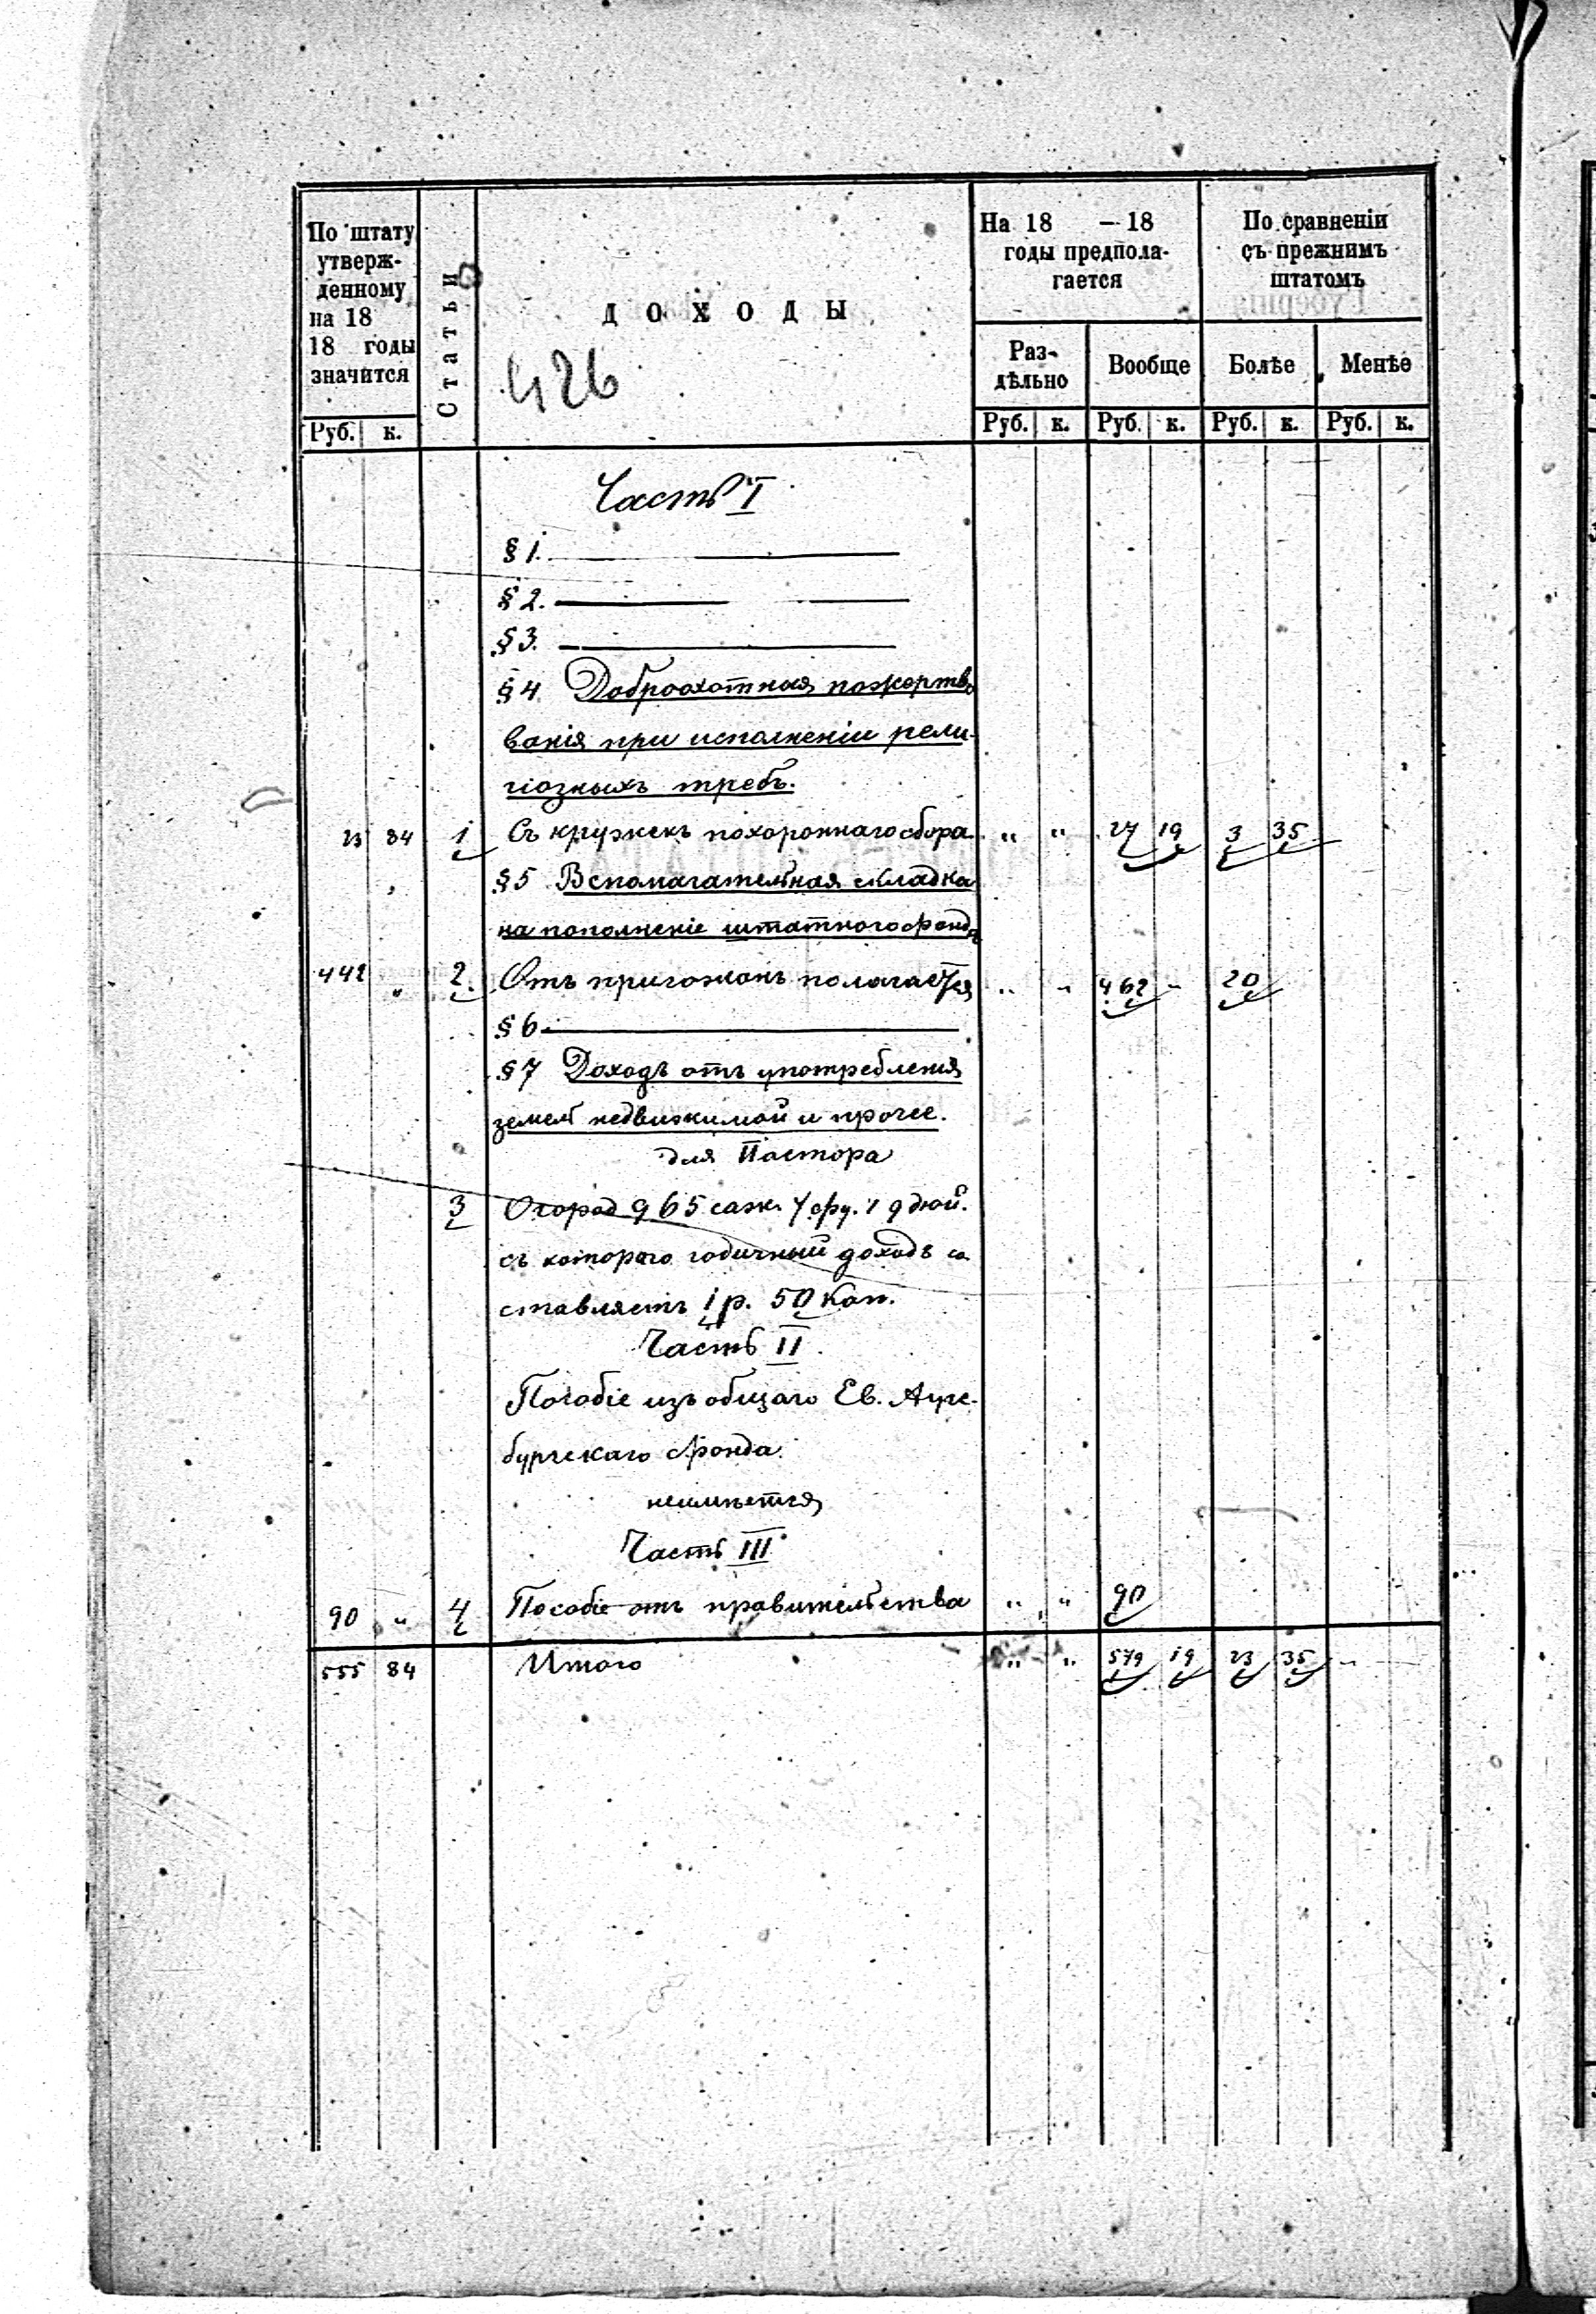 По штату утверж-денному на 18 18 годы значится
Руб. к.
Статьи
ДОХОДЫ
426
На 18 — 18 годы предпола-гается
Раз-дѣльно
Вообще
Руб. к. Руб. к.
По сравненіи съ прежнимъ штатомъ
Болѣе
Менѣе
Руб. к. Руб. к.
Часть I
§ 1.
§ 2.
§ 3.
§ 4 Доброохотныя пожертво
ванія при исполненіи рели-
гіозныхъ требъ.
23 84 1 Съ кружекъ похороннаго сбора " " 27 19 3 35
§ 5 Вспомагательная складка
на пополненіе штатного фонда
442 " 2. Отъ прихожанъ полагается " " 462 " 20
§ 6
§ 7 Доходъ отъ употребленія
земель недвижимой и прочее.
для Пастора
3 Огород 965 саж. 4 фу. 19 дюй.
съ котораго годичный доходъ со
ставляетъ 1 р. 50 Коп.
Часть II
Пособіе изъ общаго Ев. Аугс-
бургскаго Фонда
неимѣется
Часть III
90 " 4 Пособіе отъ правительства " " 90
555 84 Итого " " 579 19 23 35 "